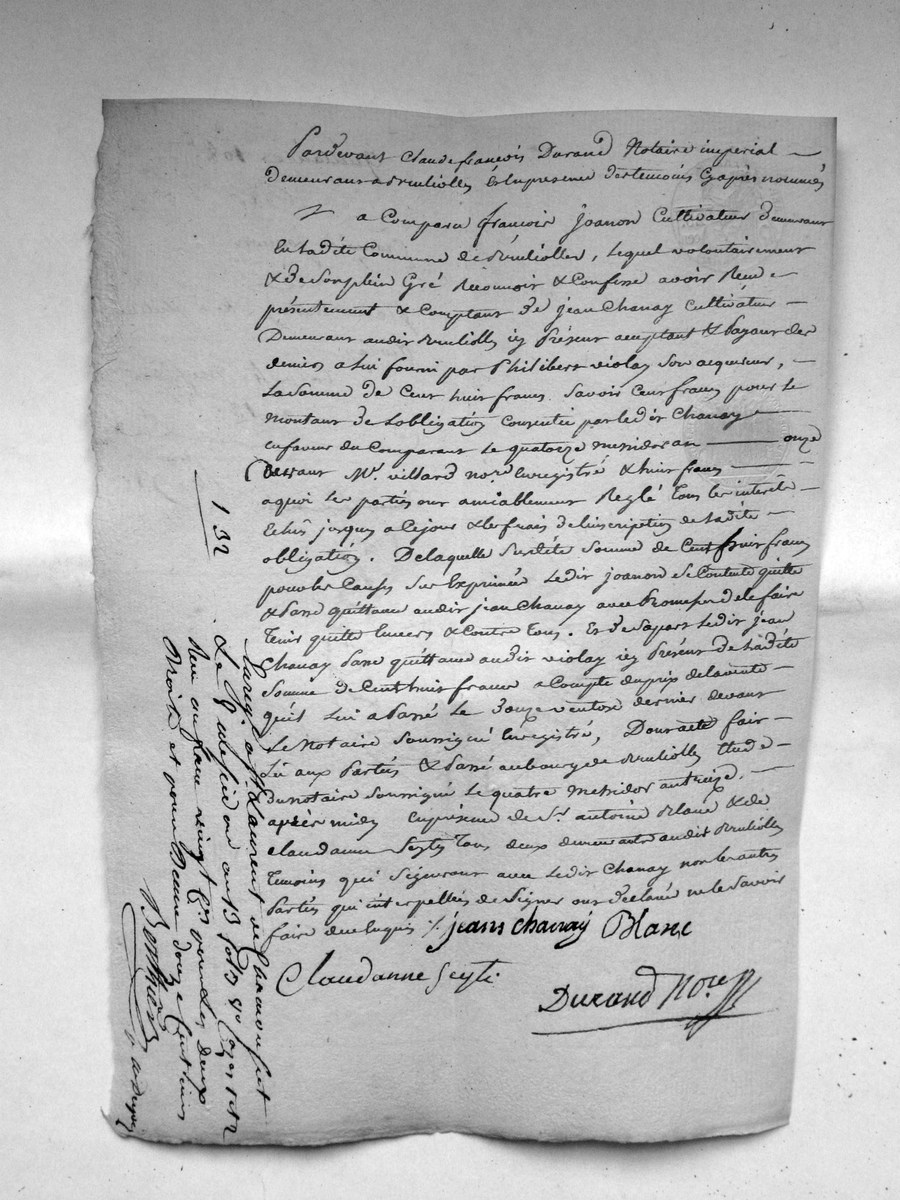 Pardevant Claude françois Durand Notaire imperial
Demeurant a Brulliolles Et en presence des temoins Cy après nommés
a Comparu françois Joanon Cultivateur Demeurant
En ladite Commune de Brulliolles, lequel volontairement
& de Son plein Gré Reconnoit & Confesse avoir Recu
présentement & Comptant De jean Chanay Cultivateur
Demeurant audit Brulliolles icy Présent acceptant & Payant des
deniers a lui fourni par Philibert violay Son acquereur,
La Somme De Cent huit francs Savoir Cent francs pour le
montant De Lobligation Consentie par ledit Chanay
en faveur du Comparant Le quatorze messidor an onze
Devant Mr. villard nore. Enregistré & huit francs
a quoi les parties ont amiablement Reglé Tous les interets
Echus jusqu'a Ce jour & les frais de linscription de ladite
obligation. De laquelle Susdite Somme de Cent huit francs
pour les Causes Sus Exprimées ledit Joanon Se Contente quitte
& Passe quittance audit jean Chanay avec Promesse de le faire
Tenir quitte Envers & Contre Tous. Et de Sa part Ledit jean
Chanay Passe quittance audit violay icy Présent de ladite
Somme De Cent huit francs a Compte du prix de la vente
qu'il Lui a Passé Le Douze ventose dernier devant
Le Notaire Soussigné Enregistré, Dont acte fait
Lû aux Parties & Passé au bourg de Brulliolles Etude
Du notaire Soussigné Le quatre messidor an treize
après midy En présence de Sr. antoine Blanc & de
Claudanne Seyty Tous deux demeurants audit Brulliolles
Temoins qui Signeront avec Ledit Chanay non les autres
Parties qui interpellées de Signer ont déclaré ne le Savoir
faire de ce Enquis ./. jean Chanay Blanc
Claudanne Seyti
Durand Nore
1 32
Enreg. a St. Laurent de Chamousset
Le 9 messidor an 13 folo
Recu un franc vingt Cinq
Droits et pour Decime douze Centimes